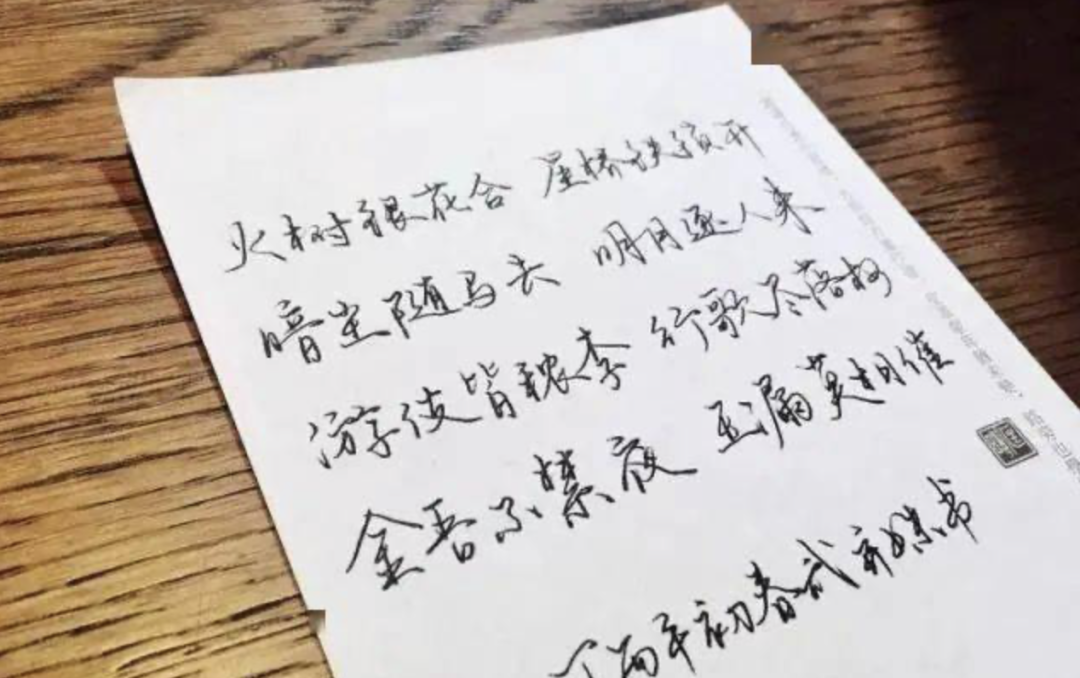 火树银花合 星桥铁锁开
暗尘随马去 明月逐人来
游伎皆秾李 行歌尽落梅
金吾不禁夜 玉漏莫相催
年初春试 书